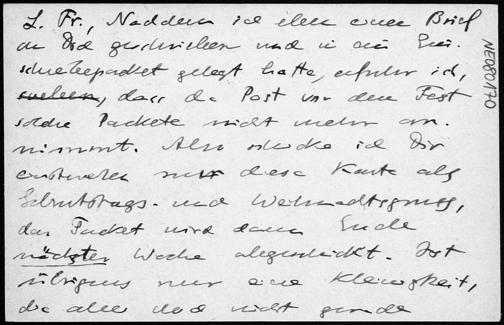 L. Fr., Nachdem ich eben einen Brief
an Dich geschrieben und in ein Ein-
schreibepacket gelegt hatte, erfuhr ich,
dass die Post vor dem Fest
solche Packete nicht mehr an-
nimmt. Also schicke ich Dir
einstweilen nur diese Karte als
Geburtstags- und Weihnachtsgruss,
das Packet wird dann Ende
nächster Woche abgeschickt. Ist
übrigens nur eine Kleinigkeit,
die aber doch nicht gerade
NE080170